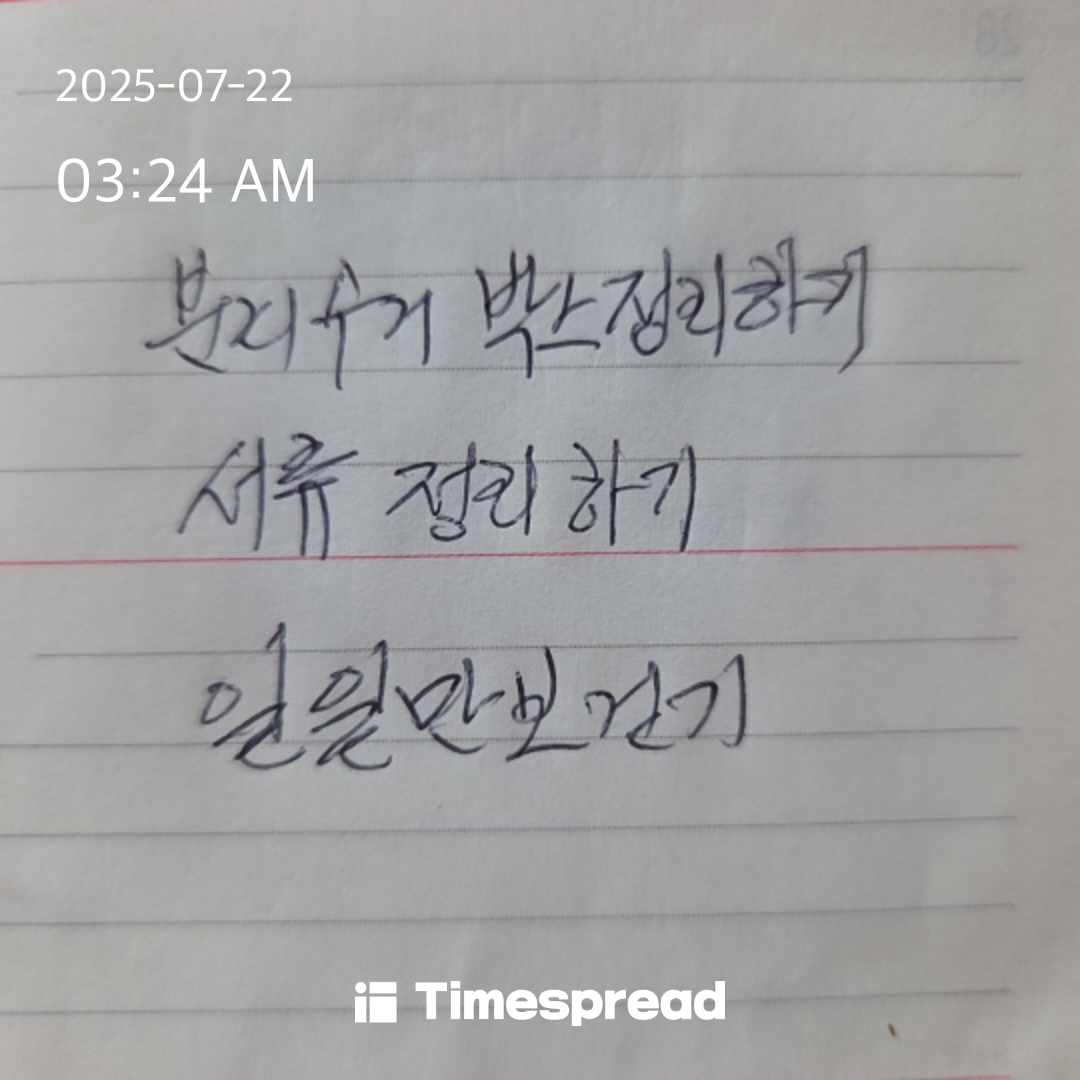 2025-07-22
03:24 AM
분리수거 박스정리하기
서류 정리 하기
일일만보걷기
Timespread